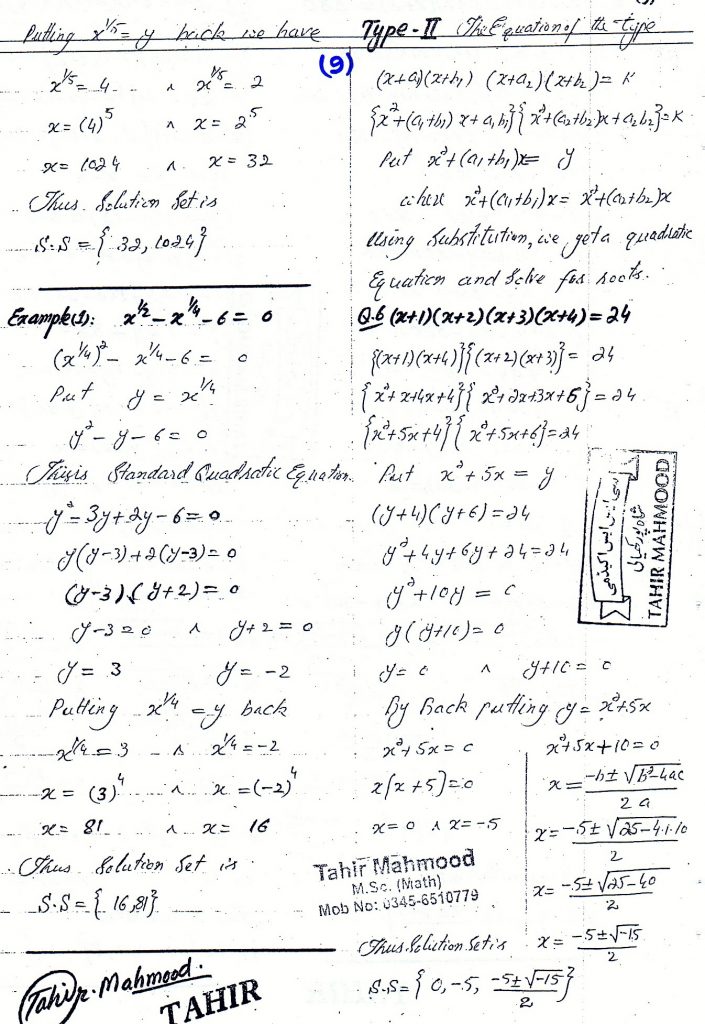 Putting x^1/5 = y back we have
x^1/5 = 4 ∧ x^1/5 = 2
x = (4)^5 ∧ x = 2^5
x = 1024 ∧ x = 32
Thus Solution Set is
S.S = { 32, 1024 }
Example(1): x^1/2 - x^1/4 - 6 = 0
(x^1/4)^2 - x^1/4 - 6 = 0
Put y = x^1/4
y^2 - y - 6 = 0
This is Standard Quadratic Equation.
y^2 - 3y + 2y - 6 = 0
y(y-3) + 2(y-3) = 0
(y-3)(y+2) = 0
y-3 = 0 ∧ y+2 = 0
y = 3 y = -2
Putting x^1/4 = y back
x^1/4 = 3 ∧ x^1/4 = -2
x = (3)^4 ∧ x = (-2)^4
x = 81 ∧ x = 16
Thus Solution Set is
S.S = { 16, 81 }
Tahir Mahmood.
TAHIR
(9)
Type-II The Equation of the type
(x+a1)(x+b1) (x+a2)(x+b2) = K
{x^2+(a1+b1)x+a1b1}{x^2+(a2+b2)x+a2b2} = K
Put x^2+(a1+b1)x = y
where x^2+(a1+b1)x = x^2+(a2+b2)x
Using Substitution, we get a quadratic
Equation and Solve for roots.
Q.6 (x+1)(x+2)(x+3)(x+4) = 24
{(x+1)(x+4)}{(x+2)(x+3)} = 24
{x^2+x+4x+4}{x^2+2x+3x+6} = 24
{x^2+5x+4}{x^2+5x+6} = 24
Put x^2+5x = y
(y+4)(y+6) = 24
y^2+4y+6y+24 = 24
y^2+10y = 0
y(y+10) = 0
y = 0 ∧ y+10 = 0
By Back putting y = x^2+5x
x^2+5x = 0
x(x+5) = 0
x = 0 ∧ x = -5
x^2+5x+10 = 0
x = -b±√b^2-4ac / 2a
x = -5±√25-4.1.10 / 2
x = -5±√25-40 / 2
x = -5±√-15 / 2
Thus Solution Set is
S.S = { 0, -5, -5±√-15 / 2 }
Tahir Mahmood
M.Sc. (Math)
Mob No: 0345-6510779
TAHIR MAHMOOD